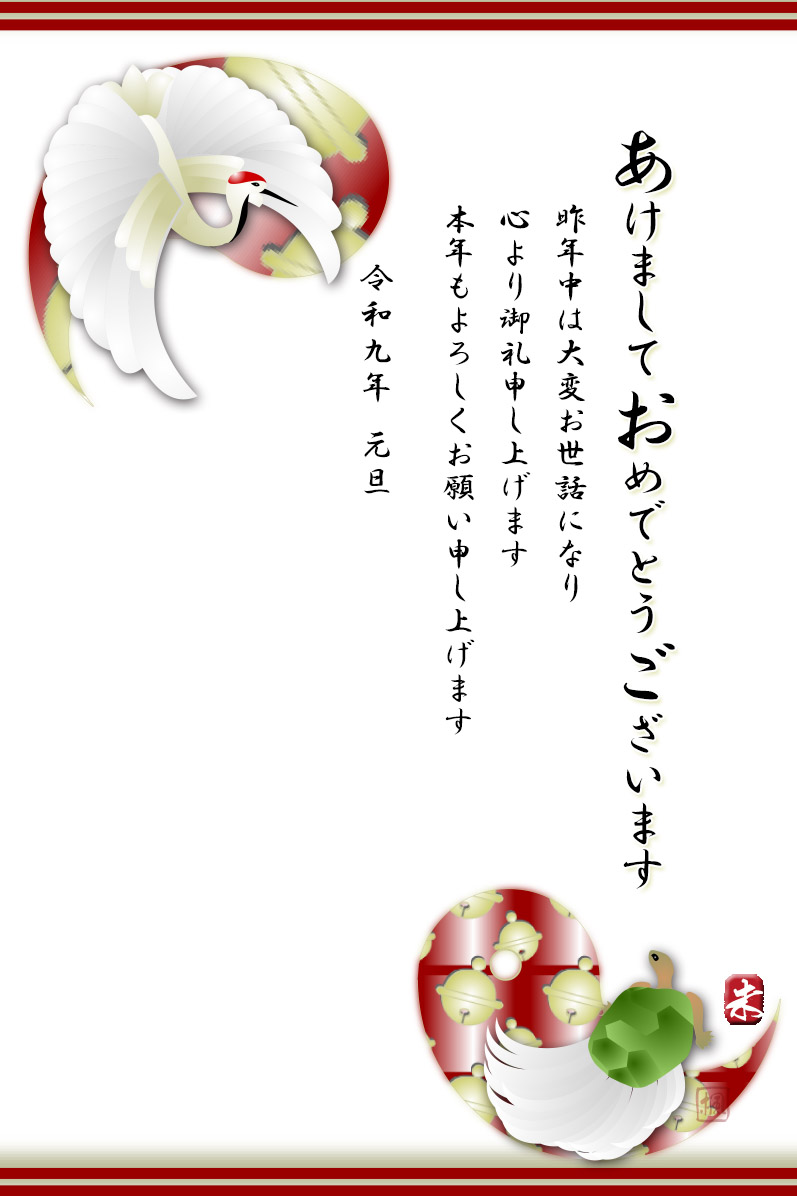 あけましておめでとうございます
昨年中は大変お世話になり
心より御礼申し上げます
本年もよろしくお願い申し上げます
令和九年 元旦
未